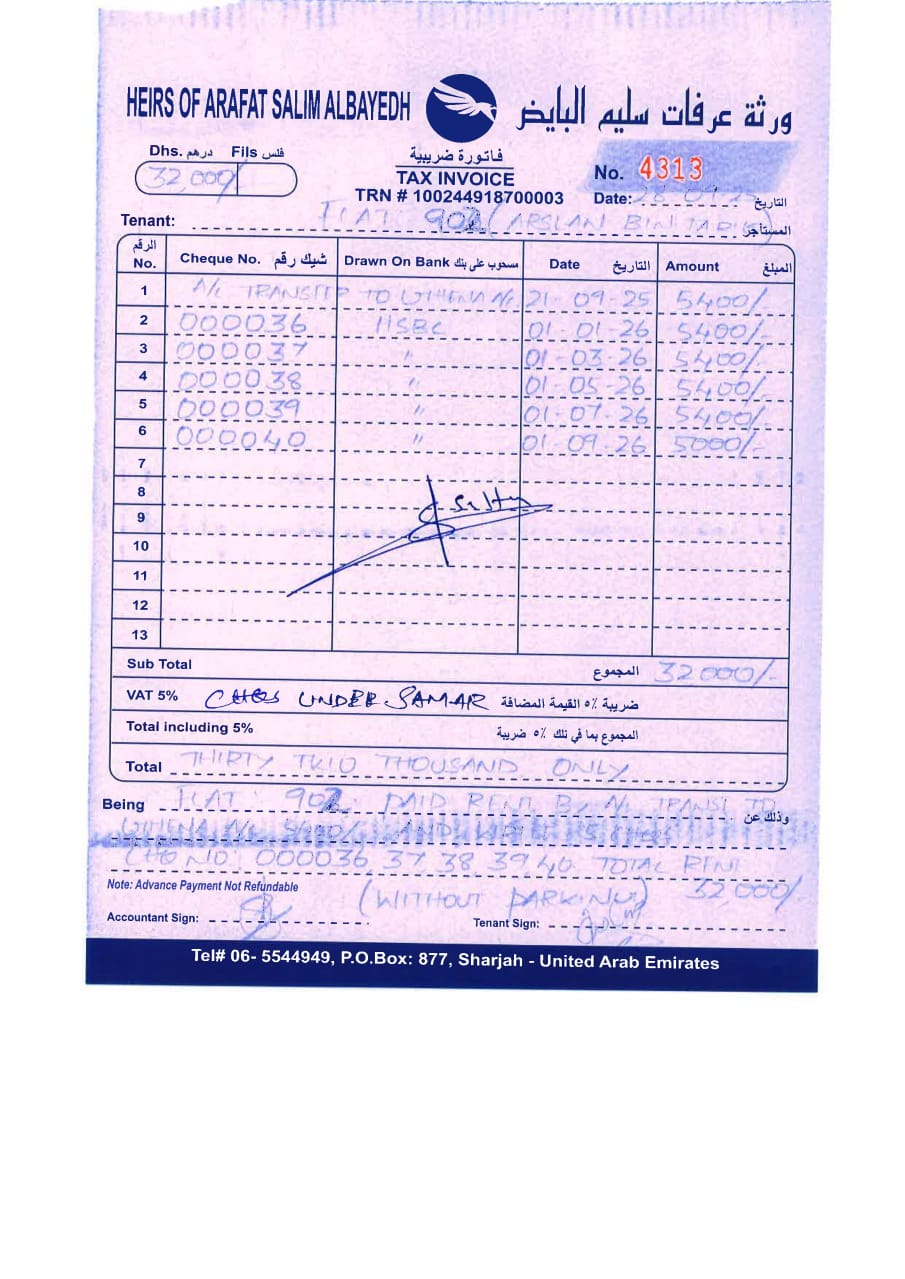 HEIRS OF ARAFAT SALIM ALBAYEDH ورثة عرفات سليم البايض
Dhs. درهم Fils فلس
32,000/
فاتورة ضريبية
TAX INVOICE
TRN # 100244918700003
No. 4313
Date: 09 التاريخ
Tenant: FLAT: 902 (ARSLAN BIN TARIQ) المستأجر
الرقم No. Cheque No. شيك رقم Drawn On Bank مسحوب على بنك Date التاريخ Amount المبلغ
1 A/C TRANSFER TO A/C 21-09-25 5400/-
2 000036 HSBC 01-01-26 5400/-
3 000037 " 01-03-26 5400/-
4 000038 " 01-05-26 5400/-
5 000039 " 01-07-26 5400/-
6 000040 " 01-09-26 5000/-
7
8
9
10
11
12
13
Sub Total المجموع 32000/-
VAT 5% CHQS UNDER SAMAR ضريبة ٥٪ القيمة المضافة
Total including 5% المجموع بما في تلك ٥٪ ضريبة
Total THIRTY TWO THOUSAND ONLY
Being FLAT: 902 PAID RENT BY A/C TRANSF TO وذلك عن
A/C 5400/- AND
CHQ NO: 000036, 37, 38, 39, 40 TOTAL RENT
Note: Advance Payment Not Refundable (WITHOUT PARKING) 32,000/-
Accountant Sign: Tenant Sign:
Tel# 06- 5544949, P.O.Box: 877, Sharjah - United Arab Emirates